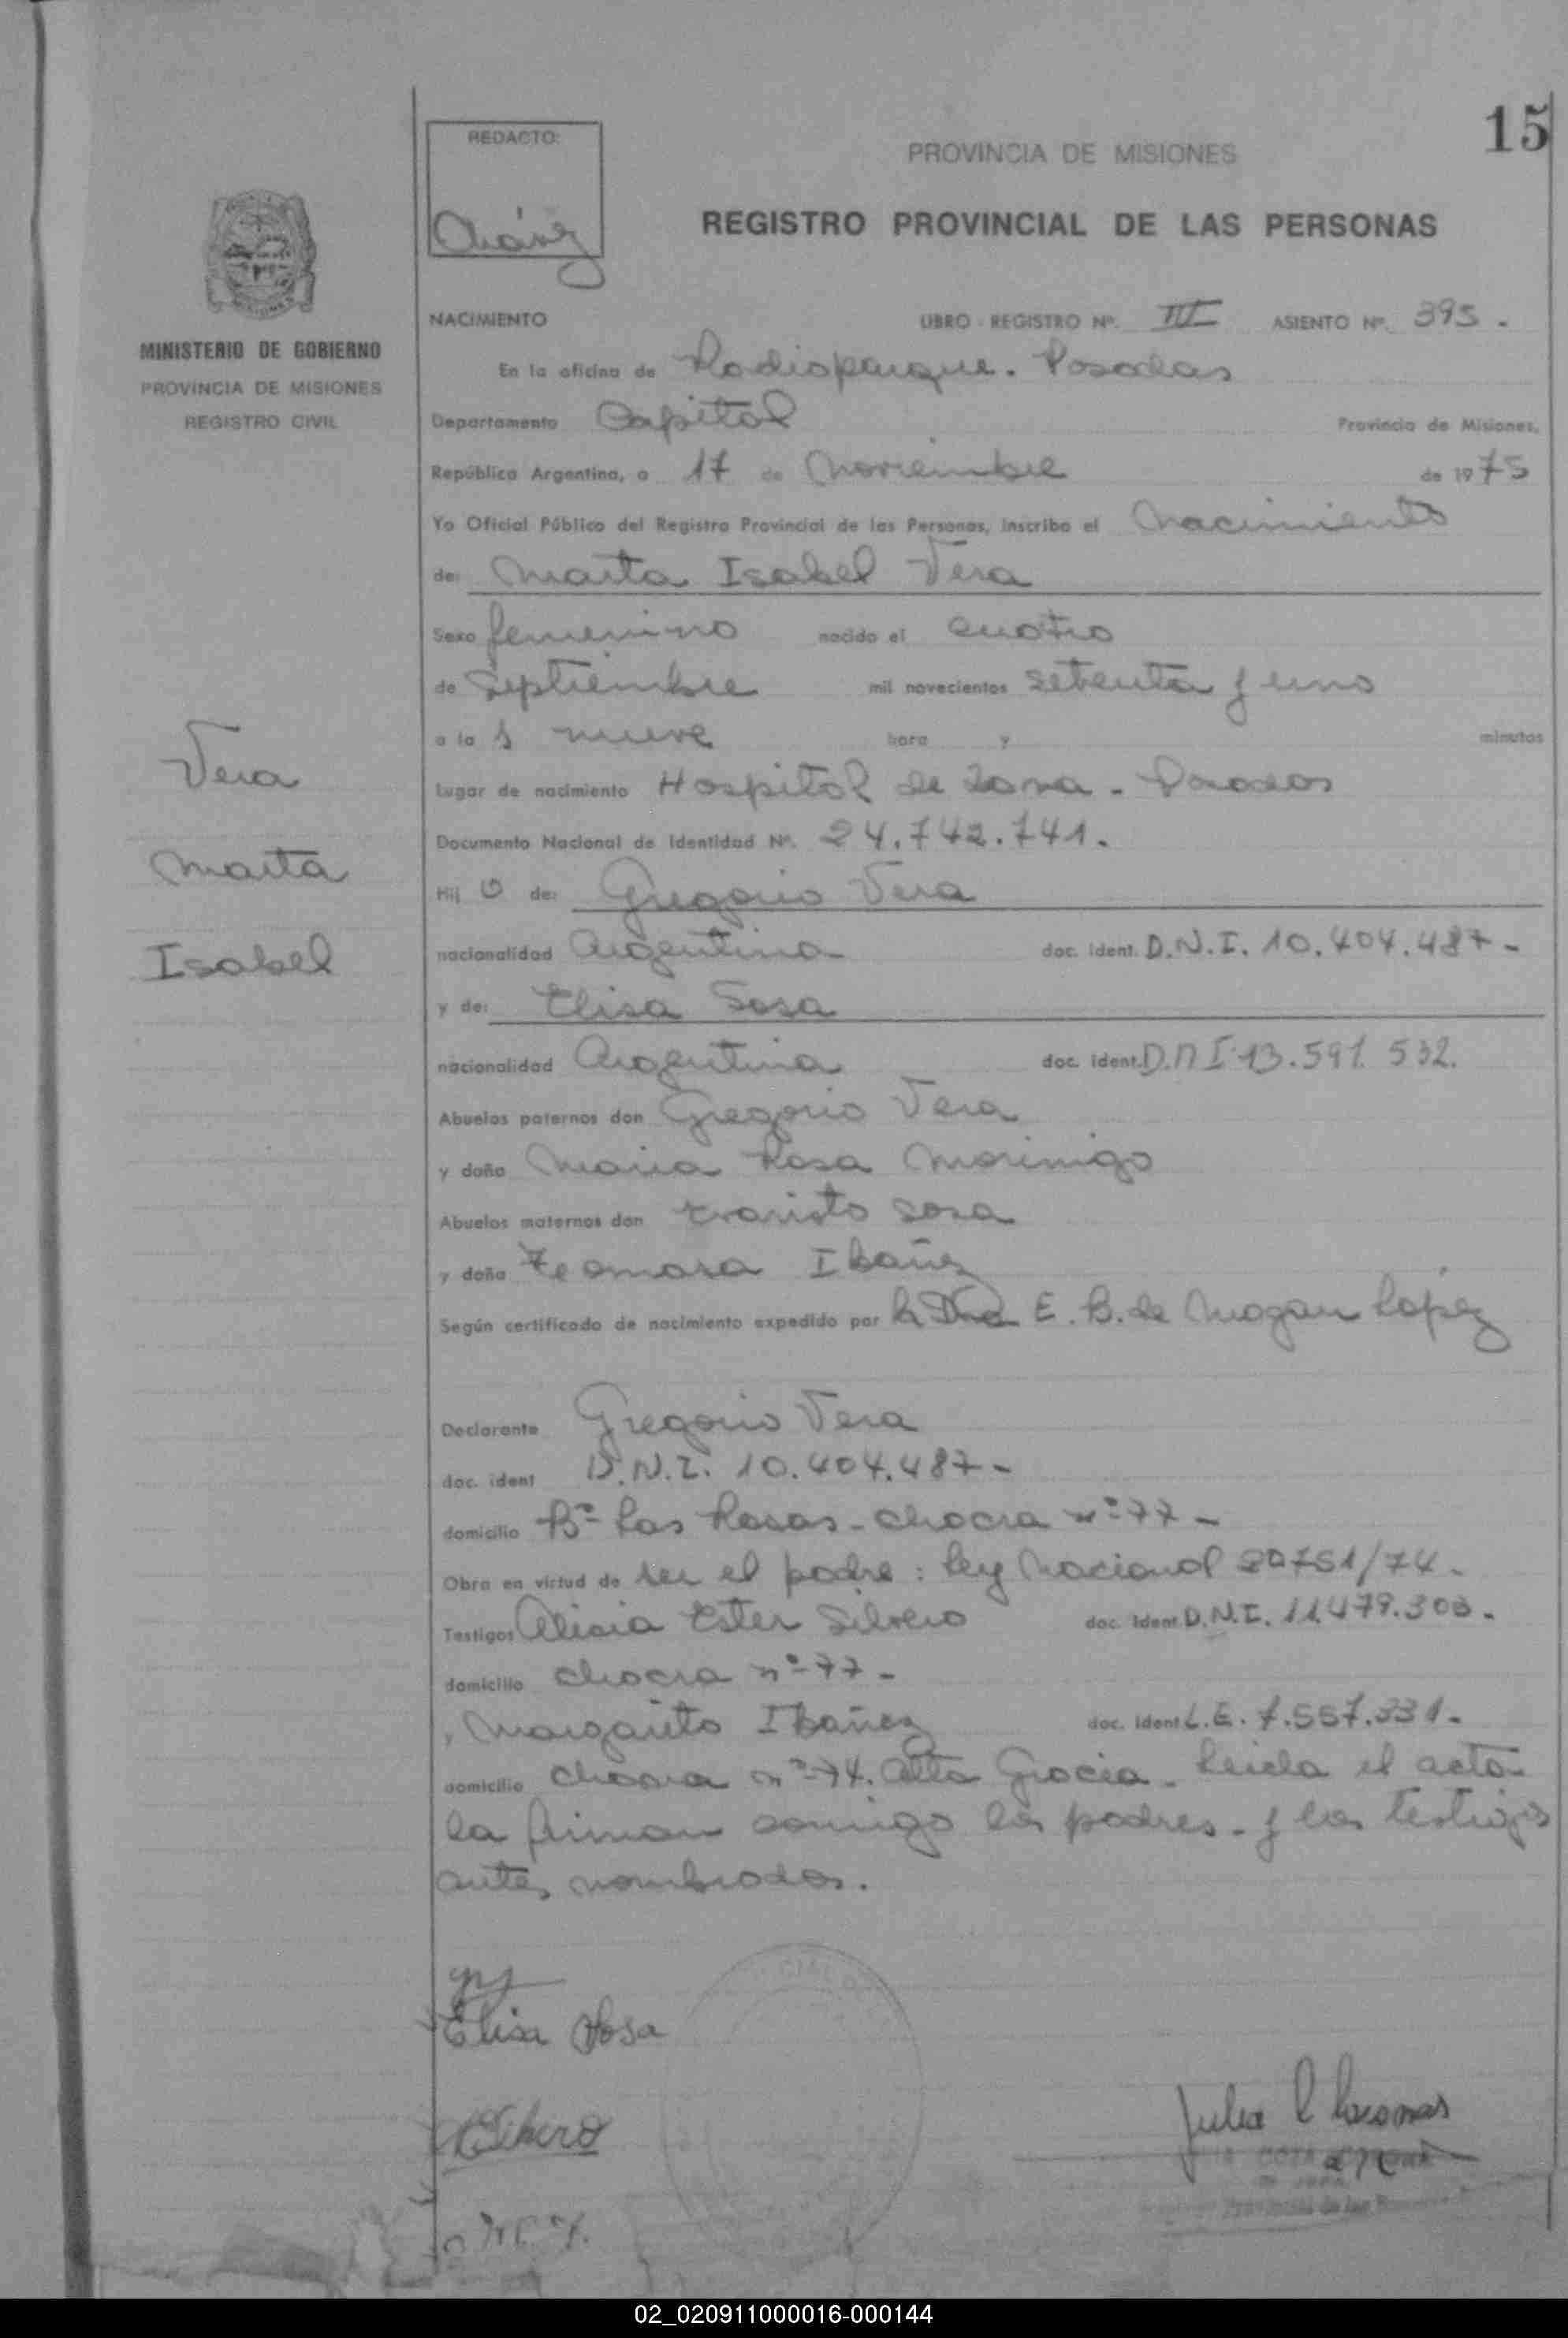 15
REDACTO:
Chávez
PROVINCIA DE MISIONES
REGISTRO PROVINCIAL DE LAS PERSONAS
MINISTERIO DE GOBIERNO
PROVINCIA DE MISIONES
REGISTRO CIVIL
NACIMIENTO LIBRO - REGISTRO Nº. III ASIENTO Nº. 395.
En la oficina de Radioparque. Posadas
Departamento Capital Provincia de Misiones,
República Argentina, a 17 de Noviembre de 1975
Yo Oficial Público del Registro Provincial de las Personas, inscribo el Nacimiento
de: Marta Isabel Vera
Sexo femenino nacido el cuatro
de Septiembre mil novecientos setenta y uno
a la s nueve hora y minutos
Vera
Marta
Isabel
Lugar de nacimiento Hospital de Zona - Posadas
Documento Nacional de Identidad Nº. 24.742.741.
Hij a de: Gregorio Vera
nacionalidad Argentina doc. ident. D.N.I. 10.404.487-
y de: Elisa Sosa
nacionalidad Argentina doc. ident. D.N I 13.591.532.
Abuelos paternos don Gregorio Vera
y doña Maria Rosa Morinigo
Abuelos maternos don Evaristo Sosa
y doña Ibañez
Según certificado de nacimiento expedido por la Dra E. B. de López
Declarante Gregorio Vera
doc. ident D.N.I. 10.404.487-
domicilio Bº Las Rosas - chacra nº 77-
Obra en virtud de ser el padre: Ley Nacional 20751/74.
Testigos Alicia Ester Silvero doc. ident. D.N.I. 11.479.303.
domicilio chacra nº 77-
y Margarito Ibañez doc. ident L.E. 7.557.331.
domicilio chacra nº 74. Alta Gracia. Leida el acta
la firman comigo los padres. y los testigos
antes nombrados.
Elisa Sosa
02_020911000016-000144